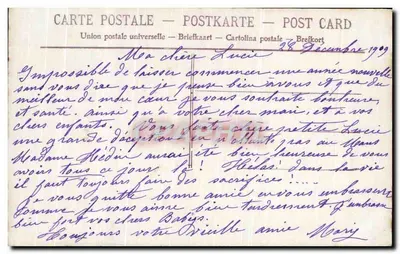 CARTE POSTALE – POSTKARTE – POST CARD
Union postale universelle – Briefkaart – Cartolina postale – Brefkort
28 Décembre 1909
Ma chère Lucie
Impossible de laisser commencer une année nouvelle
sans vous dire que je pense bien à vous et que du
meilleur de mon cœur je vous souhaite bonheur
et santé. ainsi qu'à votre cher mari, et à vos
chers enfants. Vous dont ma petite Lucie
une grande déception en n'allant pas au Mans
Madame Hédin aurait été bien heureuse de vous
avoir tous ce jour là! Hélas. dans la vie
il faut toujours faire des sacrifices!....
Je vous quitte bonne amie en vous embrassant
comme je vous aime bien tendrement. J'embrasse
bien fort vos chers Babys.
Toujours votre vieille amie Mary